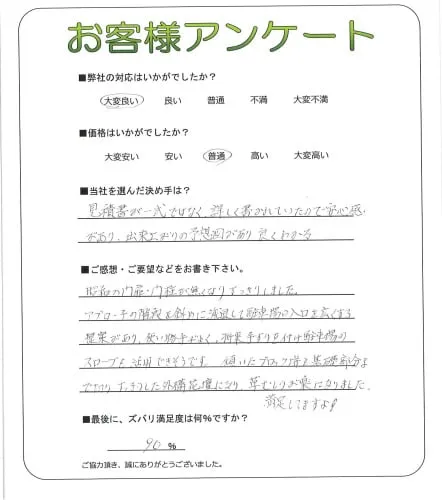 お客様アンケート
■弊社の対応はいかがでしたか？
大変良い 良い 普通 不満 大変不満
■価格はいかがでしたか？
大変安い 安い 普通 高い 大変高い
■当社を選んだ決め手は？
見積書が一式ではなく、詳しく書かれていったので安心感
があり、出来上がりの予想図があり良くわかる
■ご感想・ご要望などをお書き下さい。
昭和の内扉・門柱が無くなりすっきりしました。
アプローチの階段を斜めに 駐車場の入口を広くする
提案があり、使い勝手がよく、将来手すりを付け駐車場の
スロープも活用できそうです。傾いたブロック塀も基礎部分まで
すっきりした外構花壇になり、草むしりが楽になりました。
満足してますよ
■最後に、ズバリ満足度は何%ですか？
90 %
ご協力頂き、誠にありがとうございました。